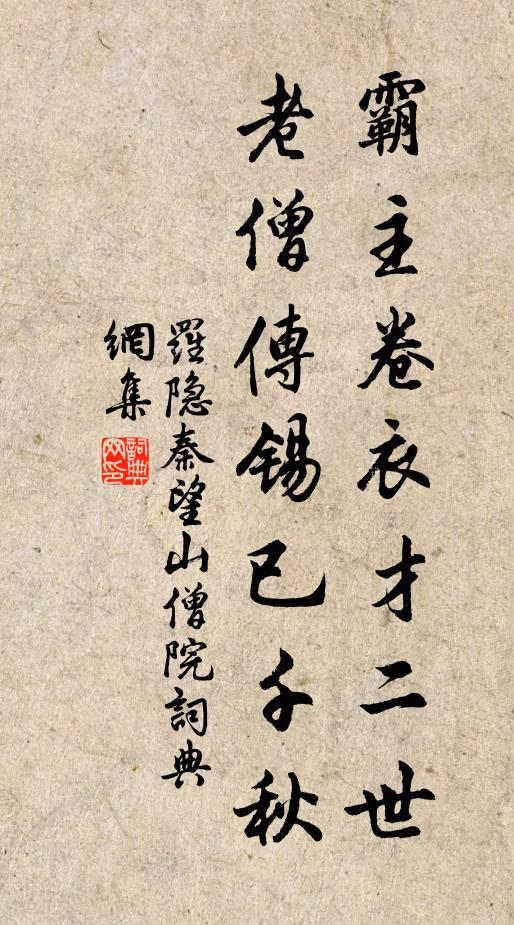 霸主卷衣才二世
老僧傳錫已千秋
羅隐秦望山僧院詞典
網集
詞典網印